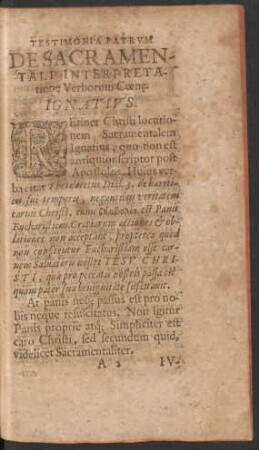 TESTIMONIA PATRVM
DE SACRAMEN-
TALI INTERPRETA-
tione Verborum Cœnæ
IGNATIVS.
REtinet Christi locutio-
nem Sacramentalem
Ignatius, quo non est
antiquior scriptor post
Apostolos. Huius ver-
ba citat Theodoretus Dial. 3. de hæreti-
cis sui temporis, negantibus veritatem
carnis Christi, cuius est Panis
Eucharisticus. Gratiarum actiones &
blationes non acceptant, propterea quod
non confiteantur Eucharistiam esse car-
nem Salvatoris nostri IESV CHRI-
STI, quæ pro peccatis nostris passa est
quam pater sua benignitate suscitavit.
At panis neq; passus est pro no-
bis neque resuscitatus. Non igitur
Panis proprie atq; Simpliciter est
caro Christi, sed secundum quid,
videlicet Sacramentaliter.
A 2 IV-